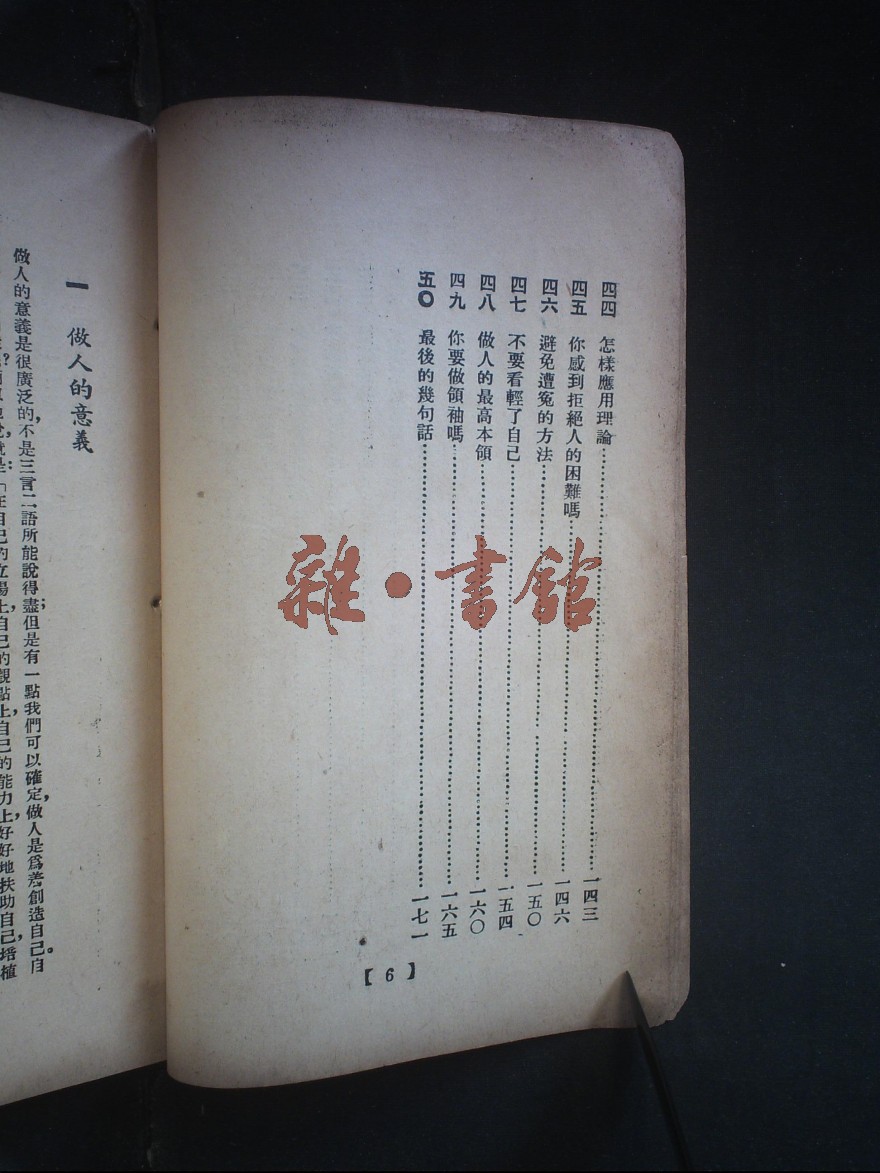 四四 怎樣應用理論……一四三
四五 你感到拒絕人的困難嗎……一四六
四六 避免遭冤的方法……一五〇
四七 不要看輕了自己……一五四
四八 做人的最高本領……一六〇
四九 你要做領袖嗎……一六五
五〇 最後的幾句話……一七一
【6】
雜·書館
一 做人的意義
做人的意義是很廣泛的,不是三言二語所能說得盡;但是有一點我們可以確定,做人是爲着創造自己。自
自己的立場上,自己的觀點上,自己的能力上,好好地扶助自己,培植